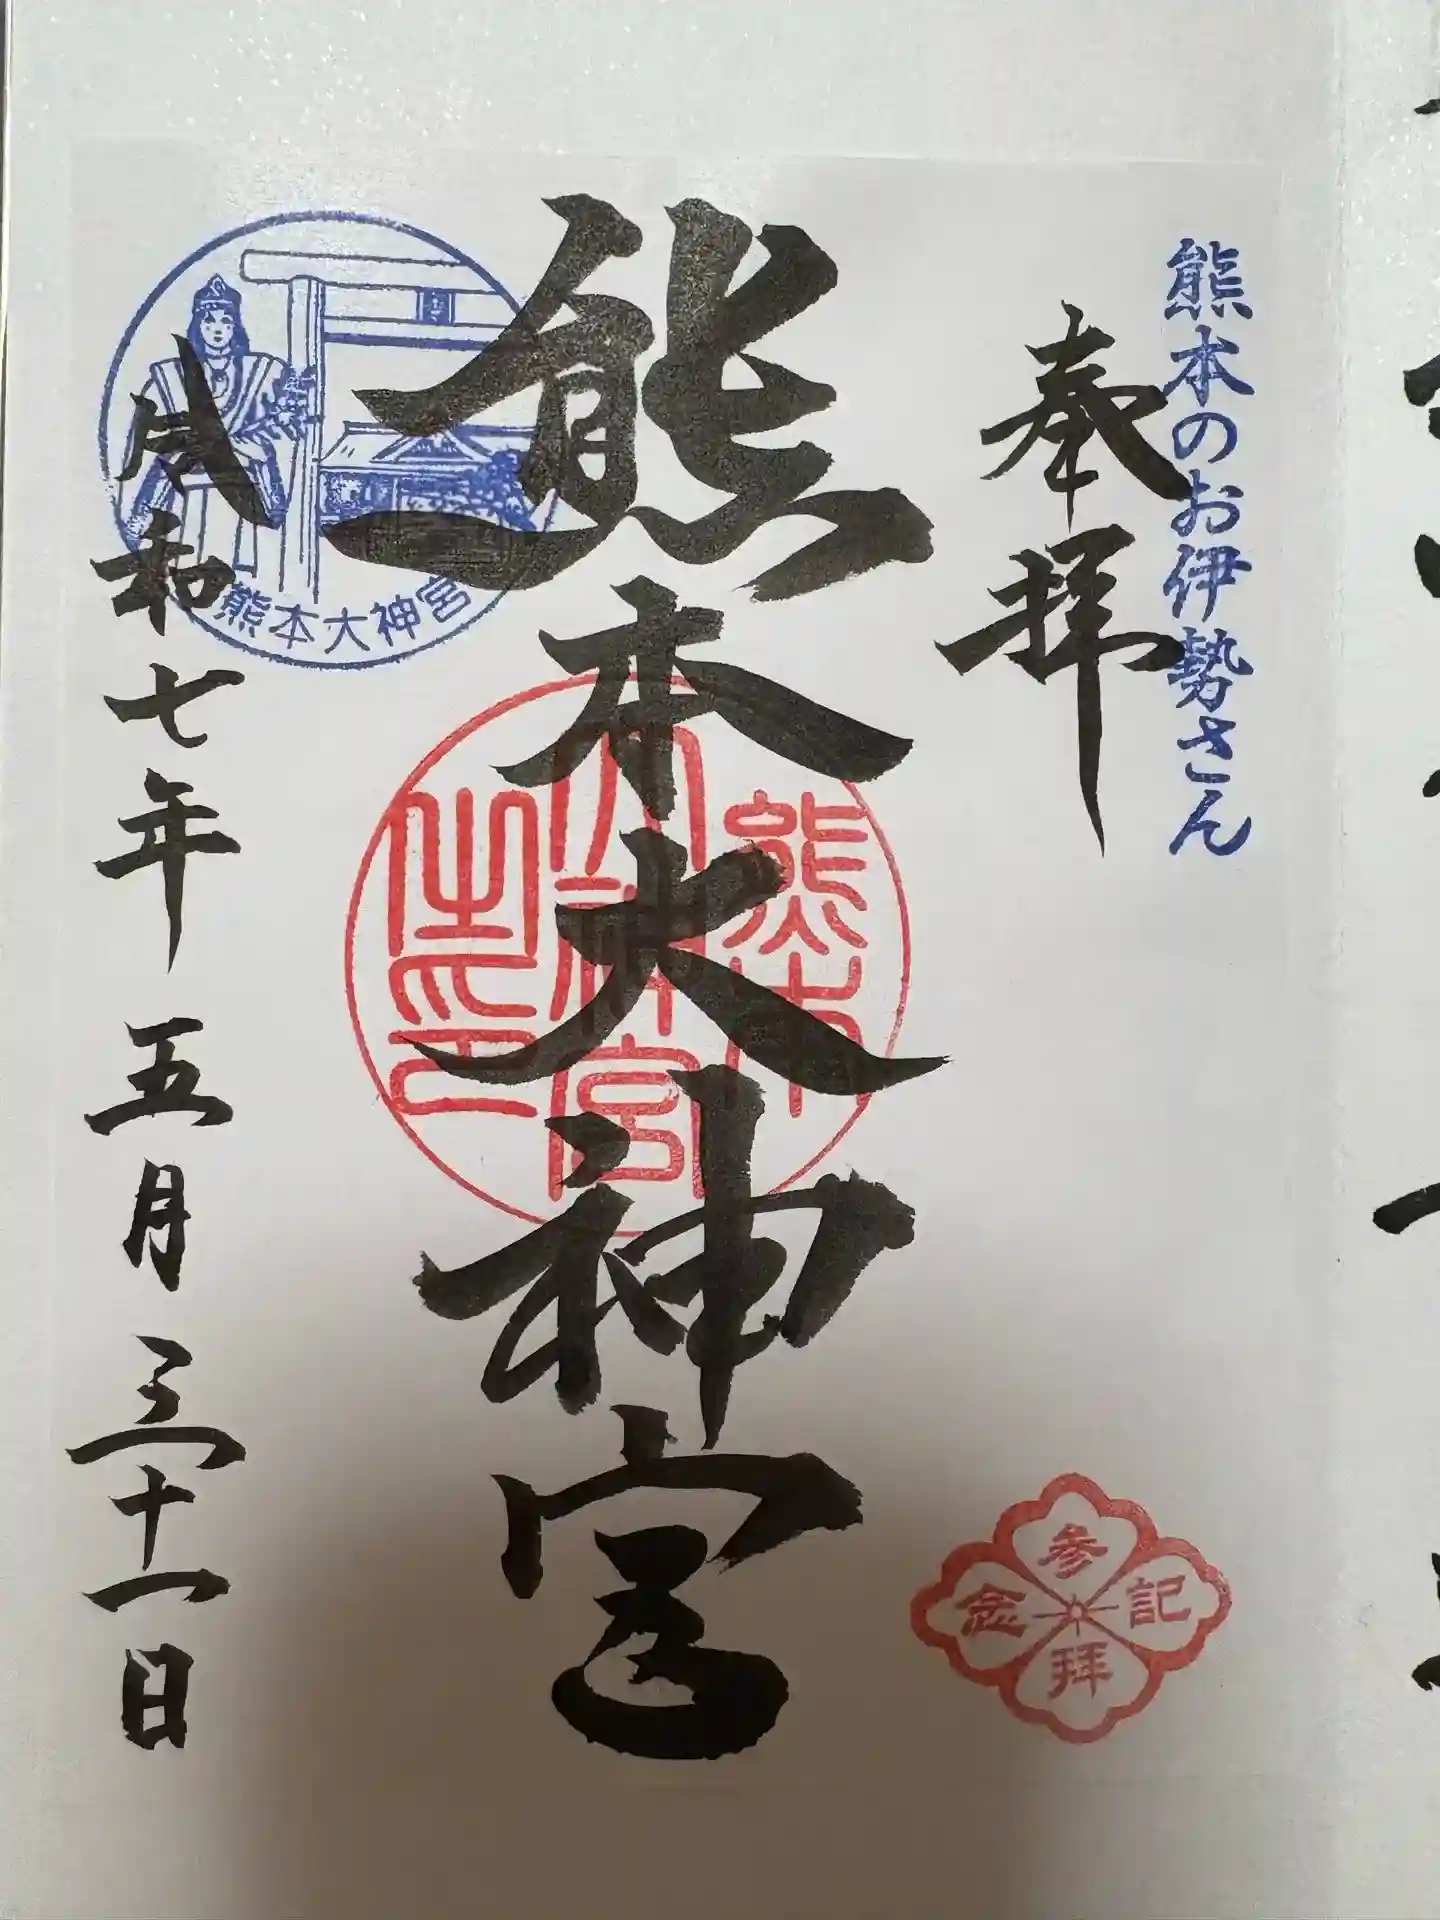 熊本のお伊勢さん
奉拝
熊本大神宮
熊本
大神宮
之印
熊本大神宮
令和七年 五月 三十一日
参拝
記念